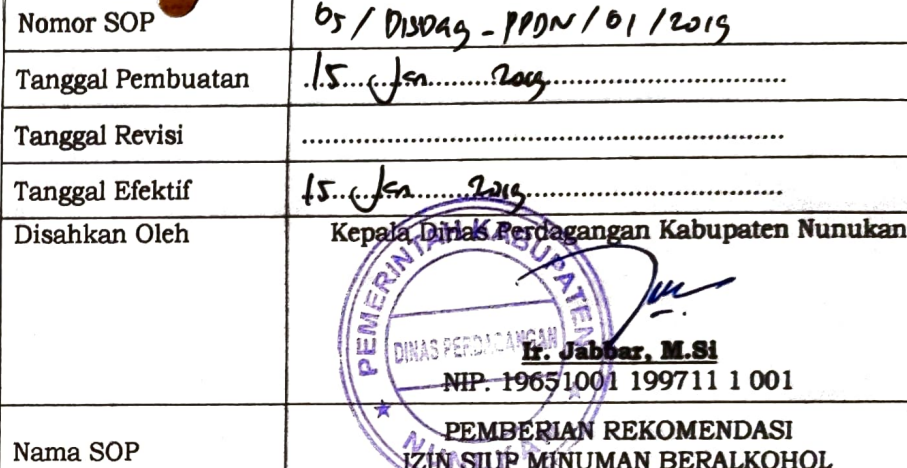 Nomor SOP 05 / DISDag - PPDN / 01 / 2019
Tanggal Pembuatan 15 Jan 2019
Tanggal Revisi
Tanggal Efektif 15 Jan 2019
Disahkan Oleh Kepala Dinas Perdagangan Kabupaten Nunukan
PEMERINTAH KABUPATEN
DINAS PERDAGANGAN
NUNUKAN
Ir. Jabbar, M.Si
NIP. 19651001 199711 1 001
Nama SOP PEMBERIAN REKOMENDASI
IZIN SIUP MINUMAN BERALKOHOL